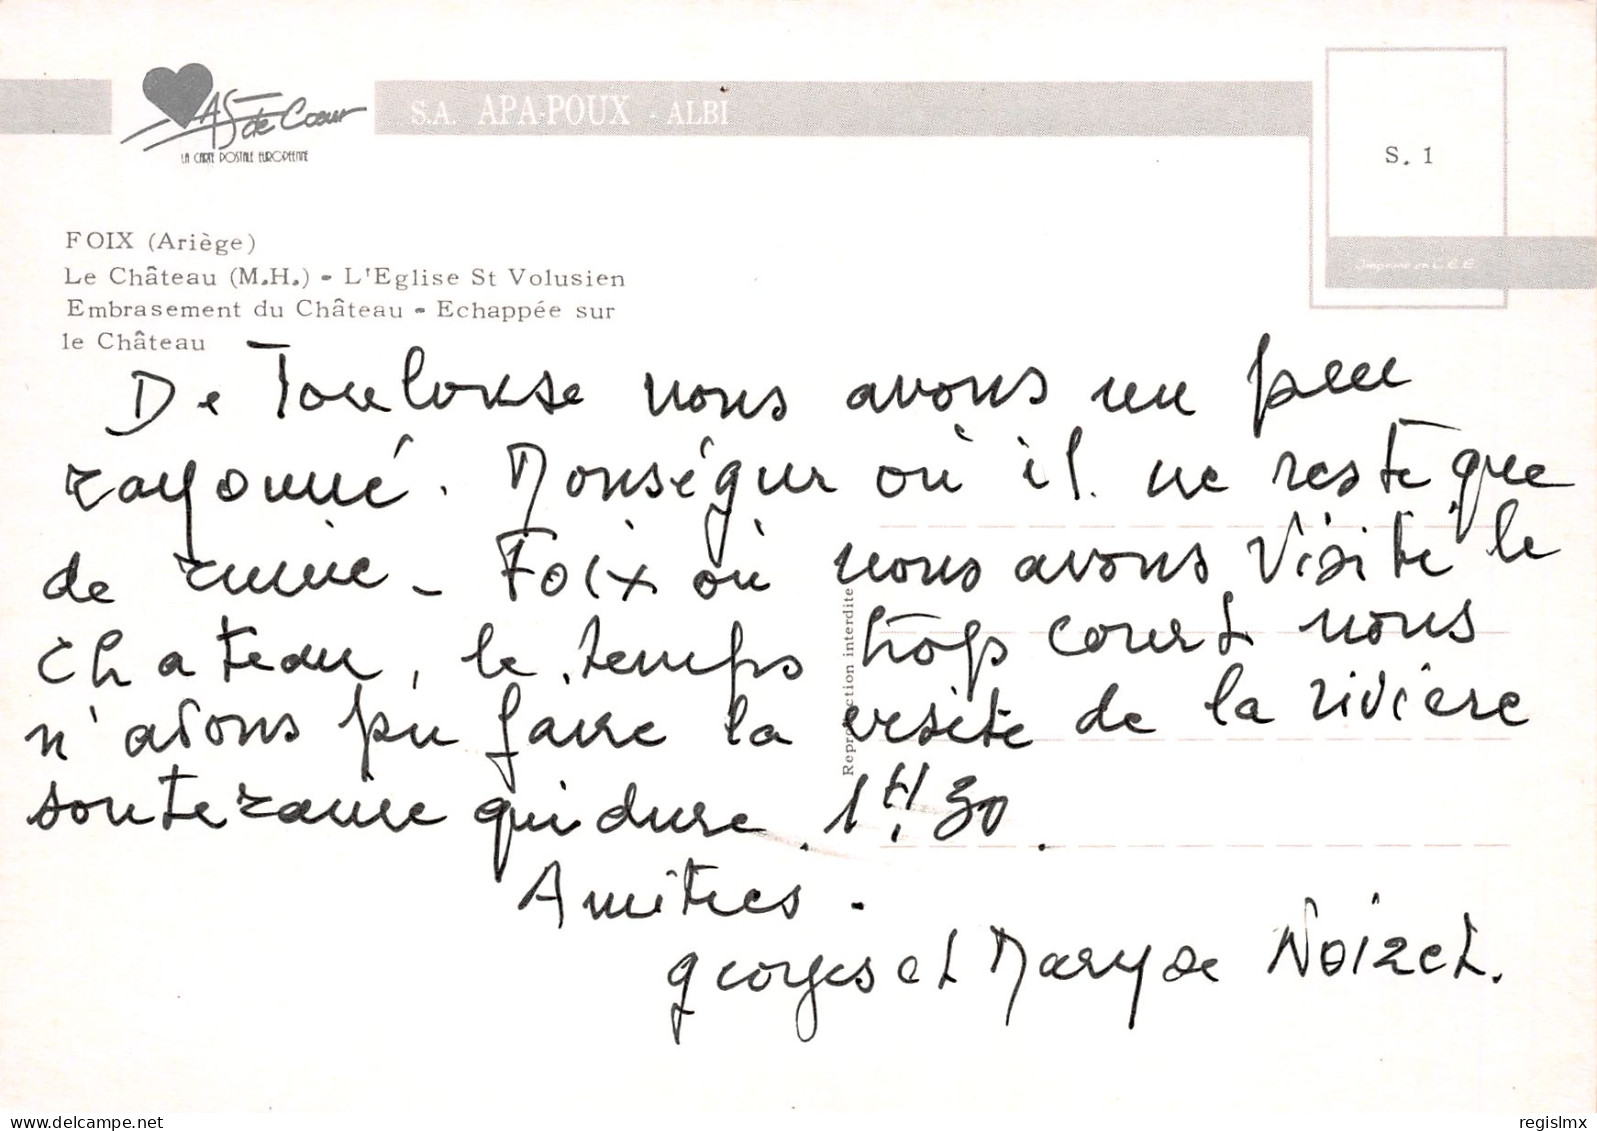 AS de Cœur
LA CARTE POSTALE EUROPÉENNE
S.A. APA-POUX - ALBI
S. 1
Imprimé en C.E.E.
FOIX (Ariège)
Le Château (M.H.) - L'Eglise St Volusien
Embrasement du Château - Echappée sur
le Château
De Toulouse nous avons un peu
rayonné. Monségur où il ne reste que
de ruine - Foix où nous avons visité le
chateau, le temps trop court nous
n'avons pu faire la visite de la rivière
souteraine qui dure 1H30.
Amitiés.
georges et Maryse Noizet.
Reproduction interdite
regislmx